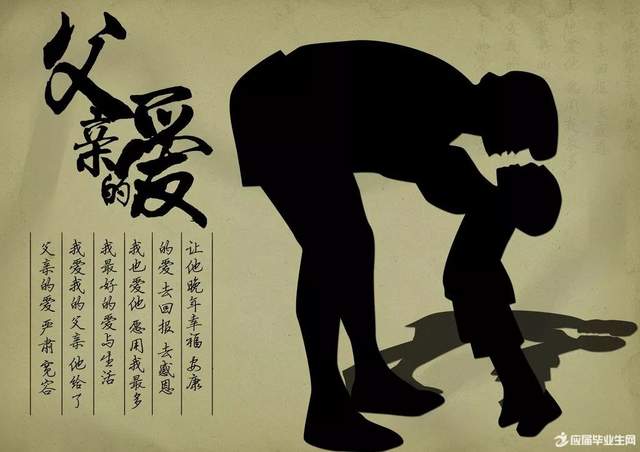 父亲的爱
父亲的爱 严肃宽容
我爱我的父亲 他给了
我最好的爱与生活
我也爱他 愿用我最多
的爱 去回报 去感恩
让他晚年幸福 安康
应届毕业生网